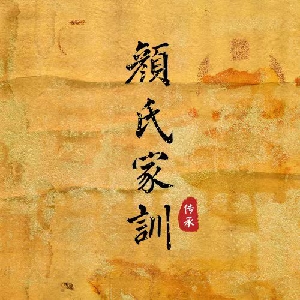 顏氏家訓
传承